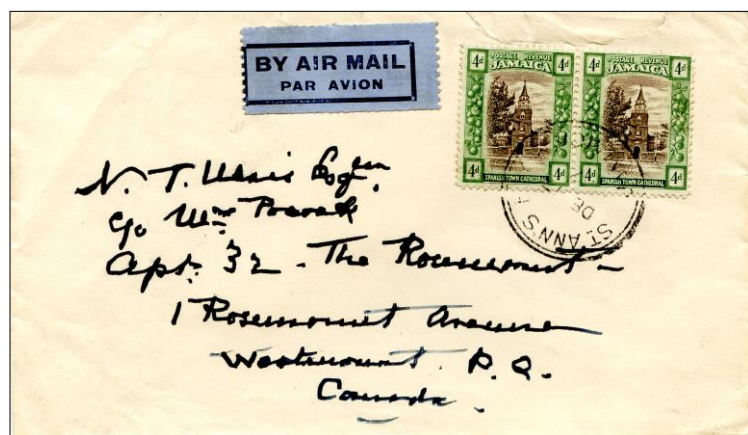 BY AIR MAIL
PAR AVION
4d POSTAGE REVENUE 4d
JAMAICA
4d SPANISH TOWN CATHEDRAL 4d
4d POSTAGE REVENUE 4d
JAMAICA
4d SPANISH TOWN CATHEDRAL 4d
ST. ANN'S
DE
N. T.
c/o
Apt. 32 - The Rosemount -
1 Rosemount Avenue
Westmount. P.Q.
Canada.